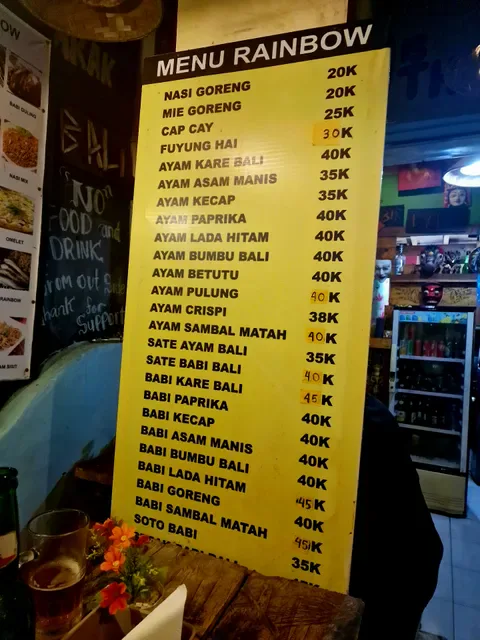 MENU RAINBOW
NASI GORENG 20K
MIE GORENG 20K
CAP CAY 25K
FUYUNG HAI 30K
AYAM KARE BALI 40K
AYAM ASAM MANIS 35K
AYAM KECAP 35K
AYAM PAPRIKA 40K
AYAM LADA HITAM 40K
AYAM BUMBU BALI 40K
AYAM BETUTU 40K
AYAM PULUNG 40K
AYAM CRISPI 38K
AYAM SAMBAL MATAH 40K
SATE AYAM BALI 35K
SATE BABI BALI 40K
BABI KARE BALI 45K
BABI PAPRIKA 40K
BABI KECAP 40K
BABI ASAM MANIS 40K
BABI BUMBU BALI 40K
BABI LADA HITAM 45K
BABI GORENG 40K
BABI SAMBAL MATAH 45K
SOTO BABI 35K
OW
BABI GULING
NASI MIE
OMELET
RAINBOW
BALI
"NO"
FOOD and
DRINK
from out side
thank for
Support